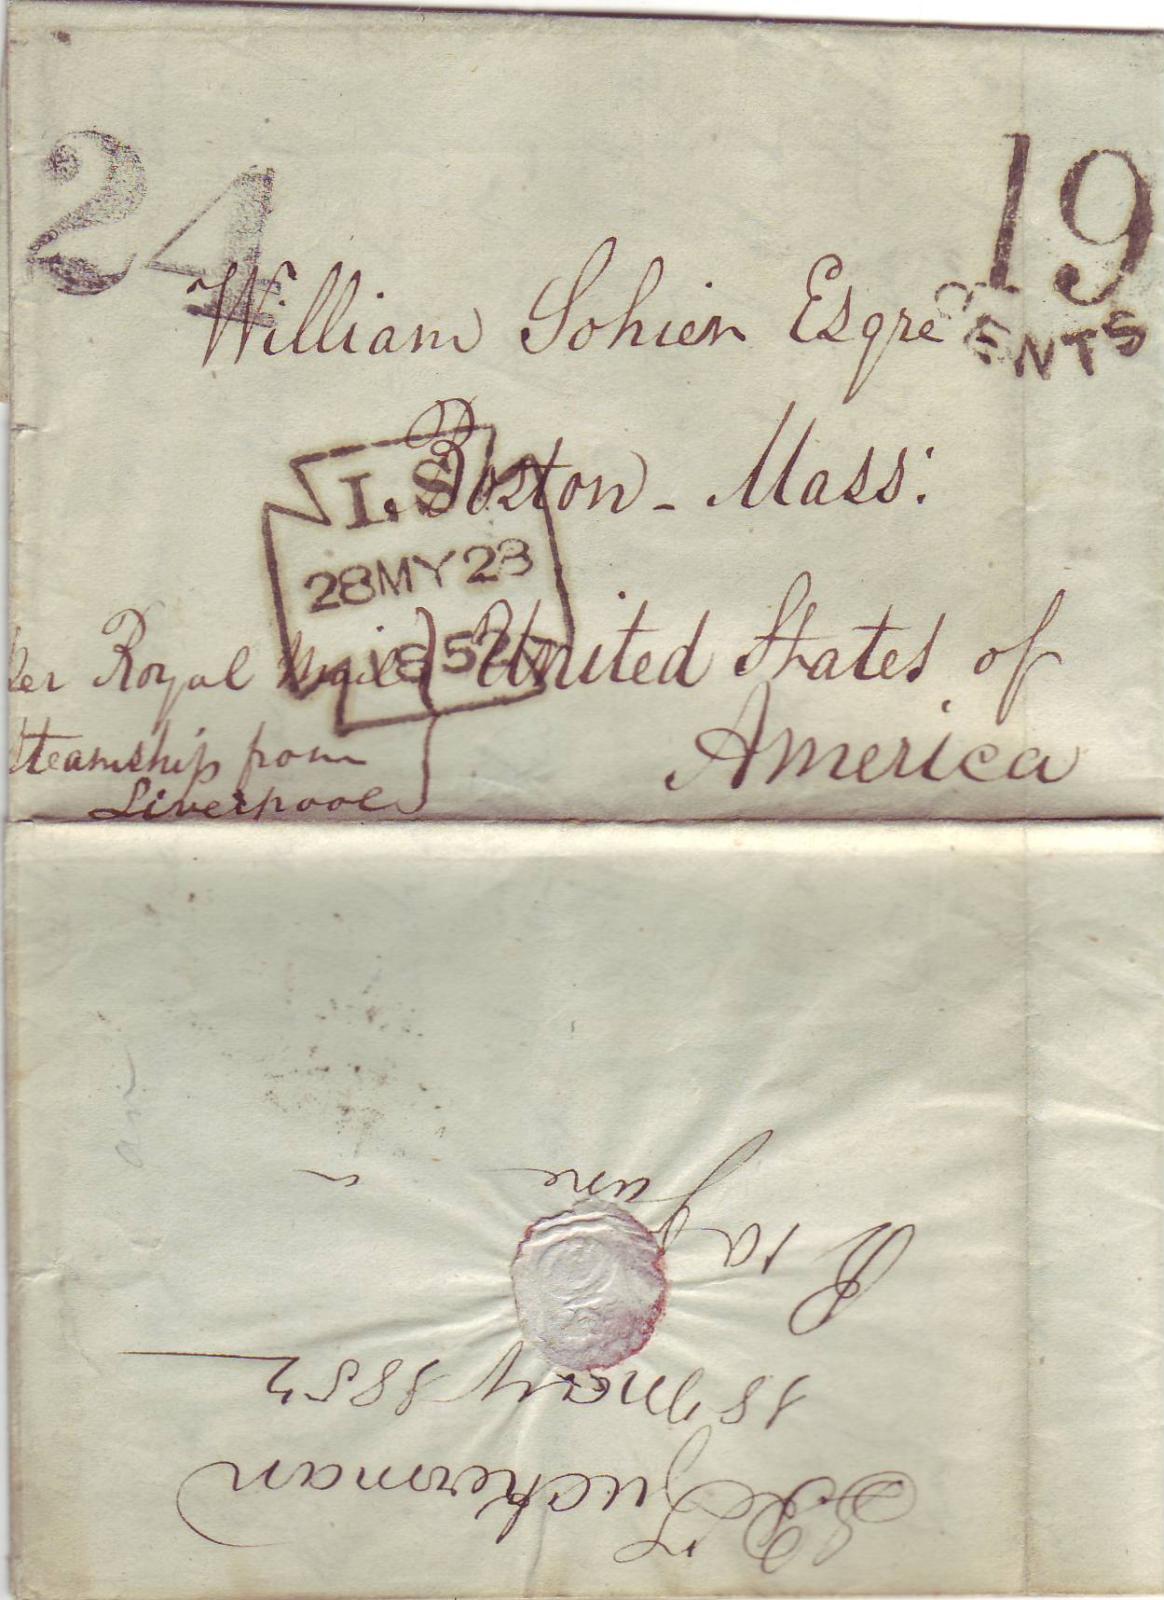 24
19
CENTS
William Sohier Esqre
Boston - Mass:
I.S.
28MY28
1852
United States of
America
Per Royal Mail
Steamship from
Liverpool
Tuckerman
18 May 1852
June